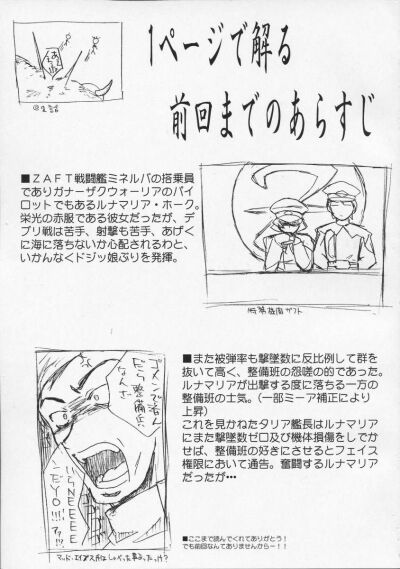 1ページで解る
前回までのあらすじ
■ZAFT戦闘艦ミネルバの搭乗員
でありガナーザクウォーリアのパイ
ロットでもあるルナマリア・ホーク。
栄光の赤服である彼女だったが、デ
ブリ戦は苦手、射撃も苦手、あげく
に海に落ちないか心配されるわと、
いかんなくドジッ娘ぶりを発揮。
■また被弾率も撃墜数に反比例して群を
抜いて高く、整備班の怨嗟の的であった。
ルナマリアが出撃する度に落ちる一方の
整備班の士気。（一部ミーア補正により
上昇）
これを見かねたタリア艦長はルナマリア
にまた撃墜数ゼロ及び機体損傷をしでか
せば、整備班の好きにさせるとフェイス
権限において通告。奮闘するルナマリア
だったが…
ゴメンで済ん
だら整備兵
なんざ
いらNEEEE
んだYO!!!ァァ!?
■ここまで読んでくれてありがとう！
でも前回なんてありませんから－！！